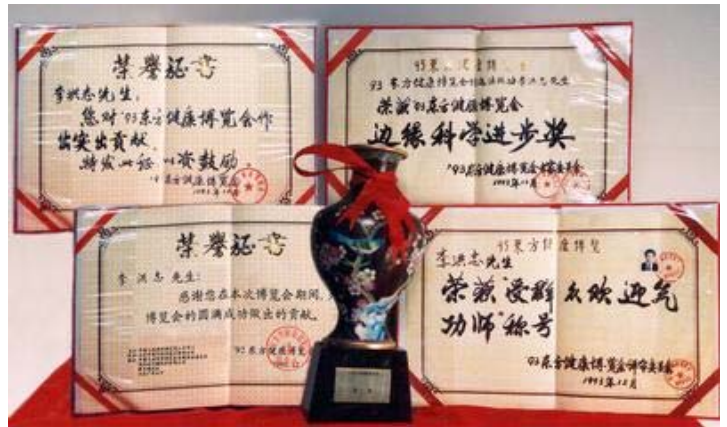 荣誉证书
李洪志先生,
您对'93东方健康博览会作
出突出贡献,
特发此证 以资鼓励。
'93东方健康博览会
1993年12月
'93东方健康博览会
荣获'93东方健康博览会
边缘科学进步奖
'93东方健康博览会
1993年12月
荣誉证书
李洪志先生:
感谢您在本次博览会期间,
博览会的圆满成功做出的贡献。
'92东方健康博览
93东方健康博览
李洪志先生
荣获"受群众欢迎气
功师"称号
93东方健康博览会评审委员会
1993年12月